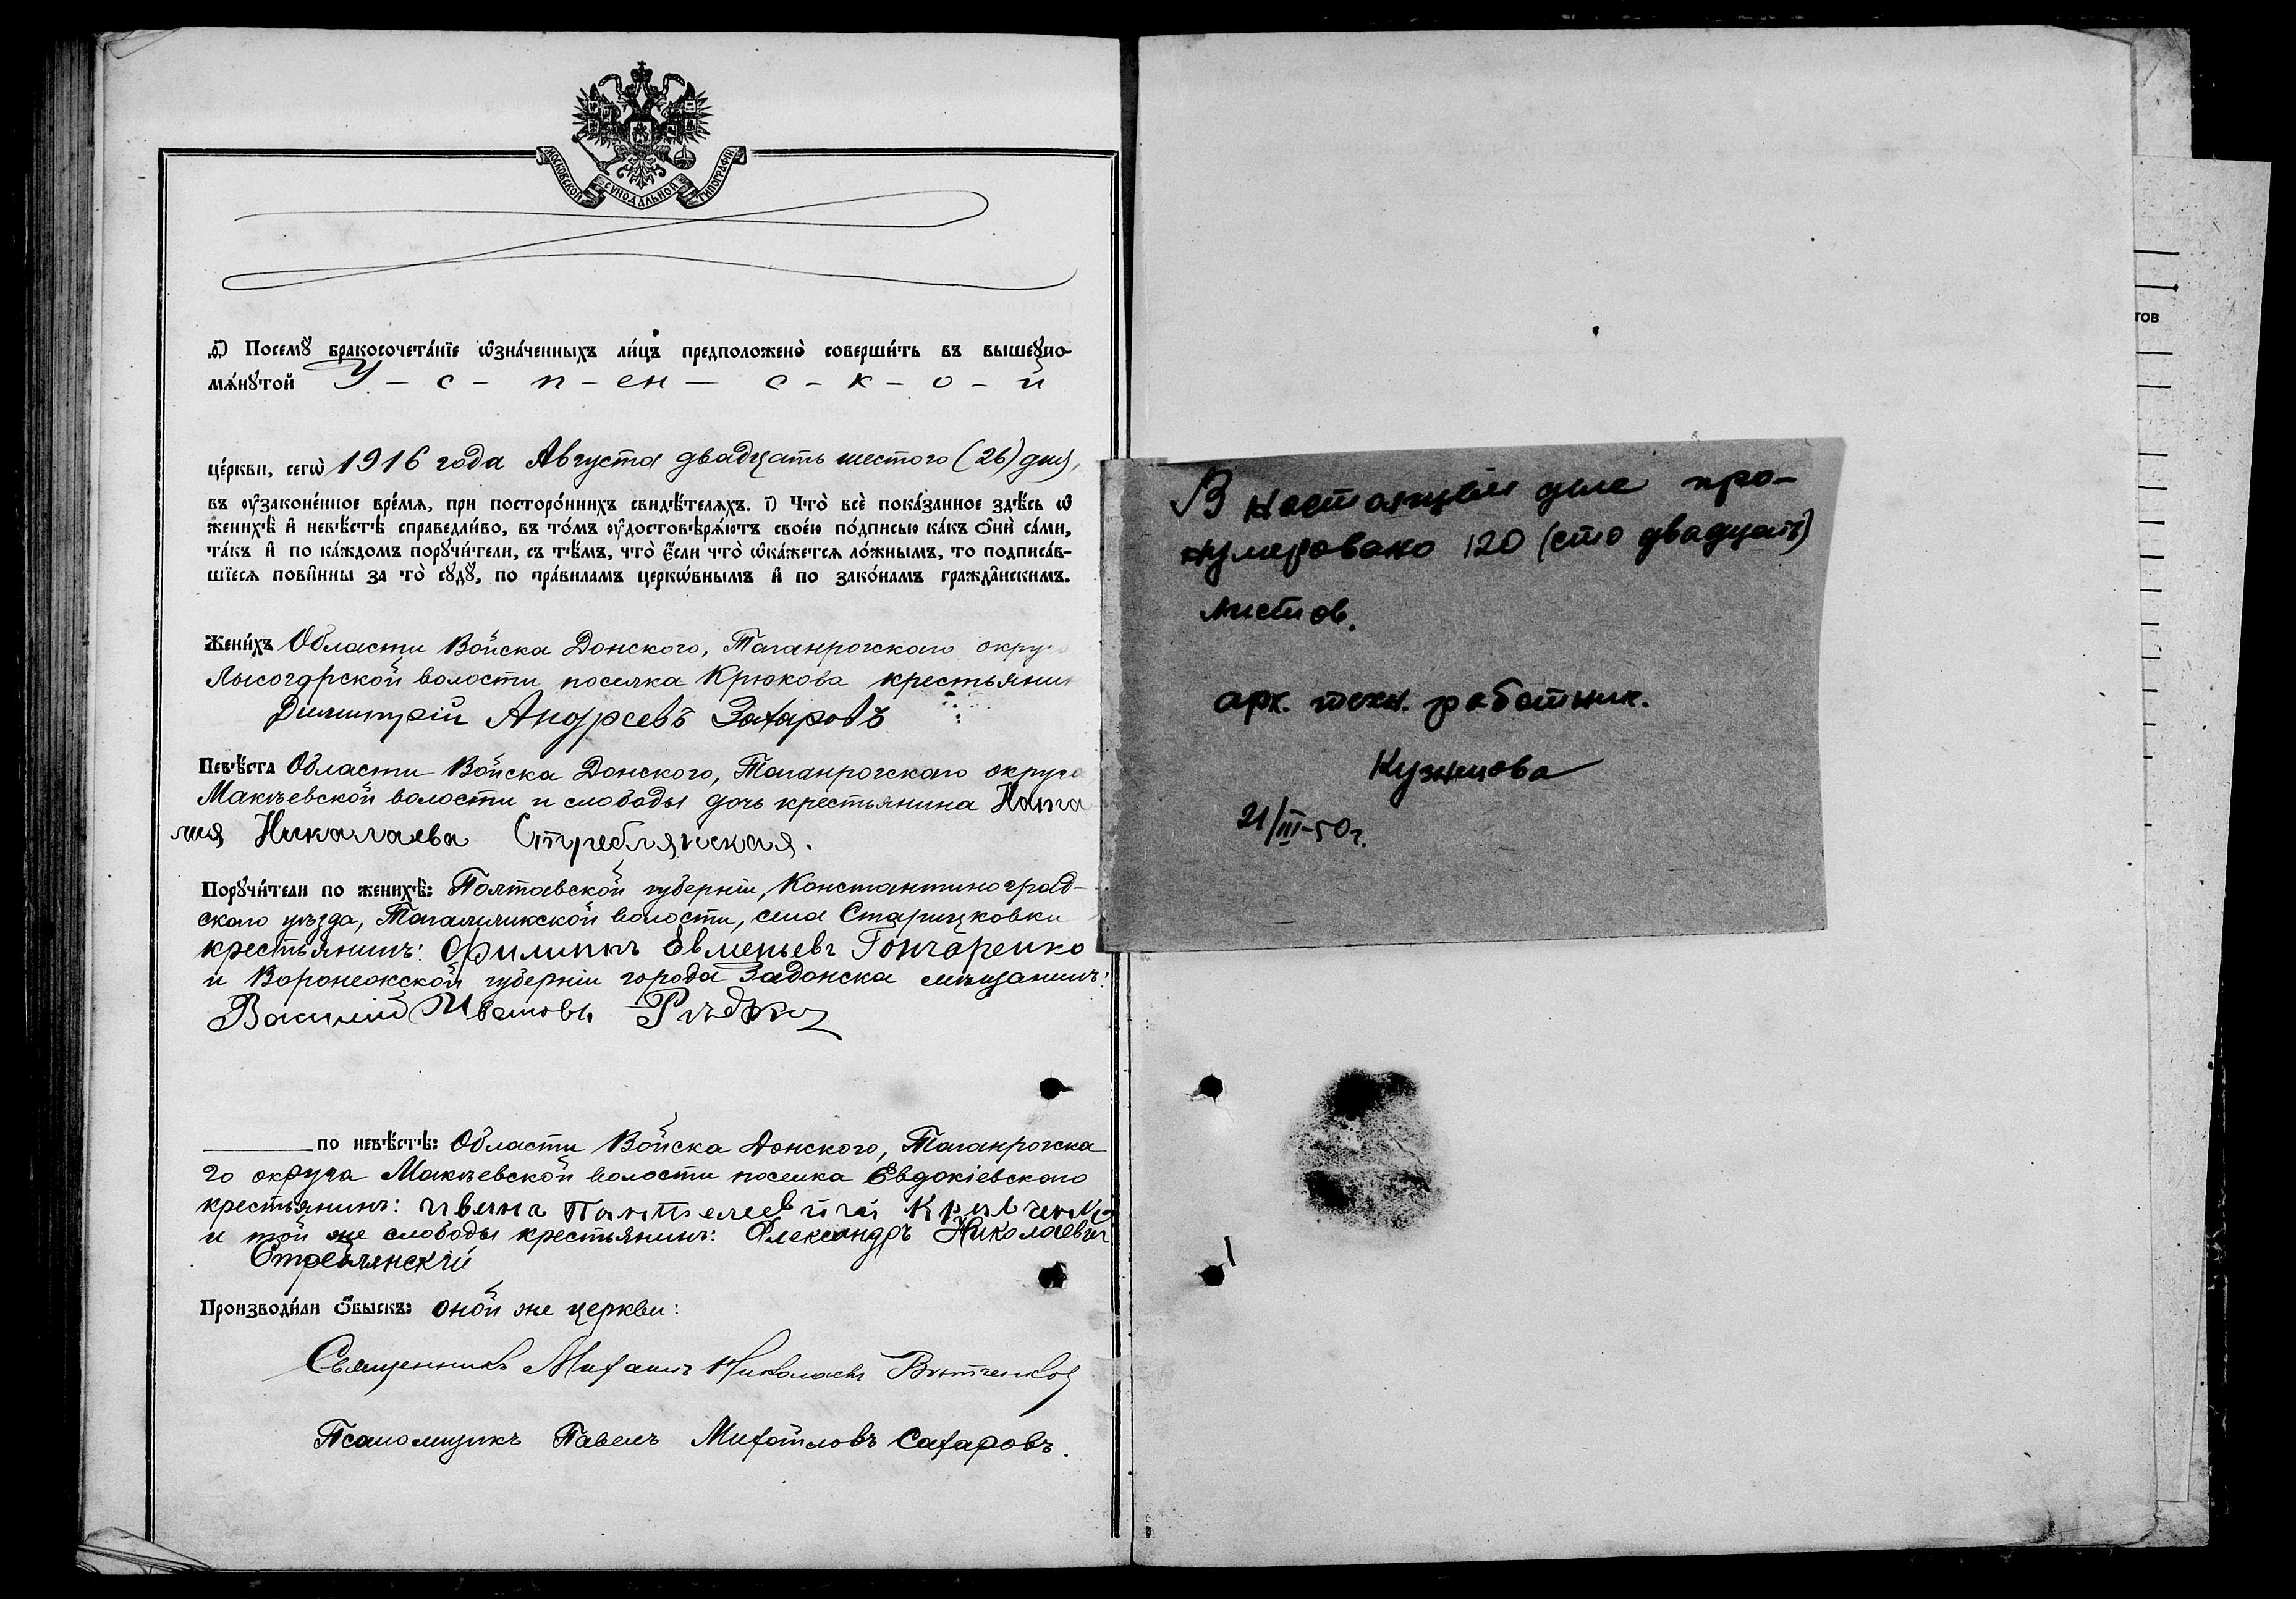 МОСКОВСКОЙ СУНОДАЛЬНОЙ ТИПОГРАФІИ
Посемꙋ̀ бракосочета́нїе ѡ҆зна́ченныхъ ли́цъ предположено̀ соверши́ть въ вышеꙋпо-
мѧ́нꙋтой У-с-п-ен-с-к-о-й
це́ркви, сегѡ̀ 1916 года Августа двадцать шестого (26) дня,
въ ᲂу҆законе́нное вре́мѧ, при посторо́ннихъ свидѣ́телѧхъ. і҃) Что̀ всѐ пока́занное здѣ́сь ѡ҆
женихѣ̀ и҆ невѣ́стѣ справедли́во, въ то́мъ ᲂу҆достовѣрѧ́ютъ свое́ю по́дписью ка́къ ѻ҆нѝ са́ми,
та́къ и҆ по ка́ждомъ порꙋчи́тели, съ тѣ́мъ, что̀ є҆́сли что̀ ѡ҆ка́жетсѧ ло́жнымъ, то подписа́в-
шїесѧ пови́нны за то̀ сꙋдꙋ̀, по пра́виламъ церкѡ́внымъ и҆ по зако́намъ гражда́нскимъ.
Жени́хъ Области Войска Донского, Таганрогскаго округа
Лысогорской волости поселка Крюкова крестьянин
Димитрій Андреевъ Захаровъ
Невѣ́ста Области Войска Донского, Таганрогскаго округа
Макѣевской волости и слободы дочь крестьянина Ната
лия Николаева Стреблянская.
Порꙋчи́тели по женихѣ̀: Полтавской губерніи, Константиноград-
скаго уѣзда, Тагамлыкской волости, села Старицковки
крестьянинъ: Филиппъ Евменьевъ Гончаренко
и Воронежской губерніи города Задонска мѣщанинъ:
Василий Ивановъ
по невѣ́стѣ: Области Войска Донского, Таганрогска
го округа Макѣевской волости поселка Евдокіевскаго
крестьянинъ:
и той же слободы крестьянинъ: Александръ Николаевич
Стреблянскій
Производи́ли ѻ҆́быскъ: оной же церкви:
Священникъ Михаилъ Николаевъ
Псаломщикъ Павелъ Михайловъ Сахаровъ.
В настоящем деле про-
нумеровано 120 (сто двадцать)
листов.
арх. техн. работник.
Кузнецова
21/III-50г.
тов